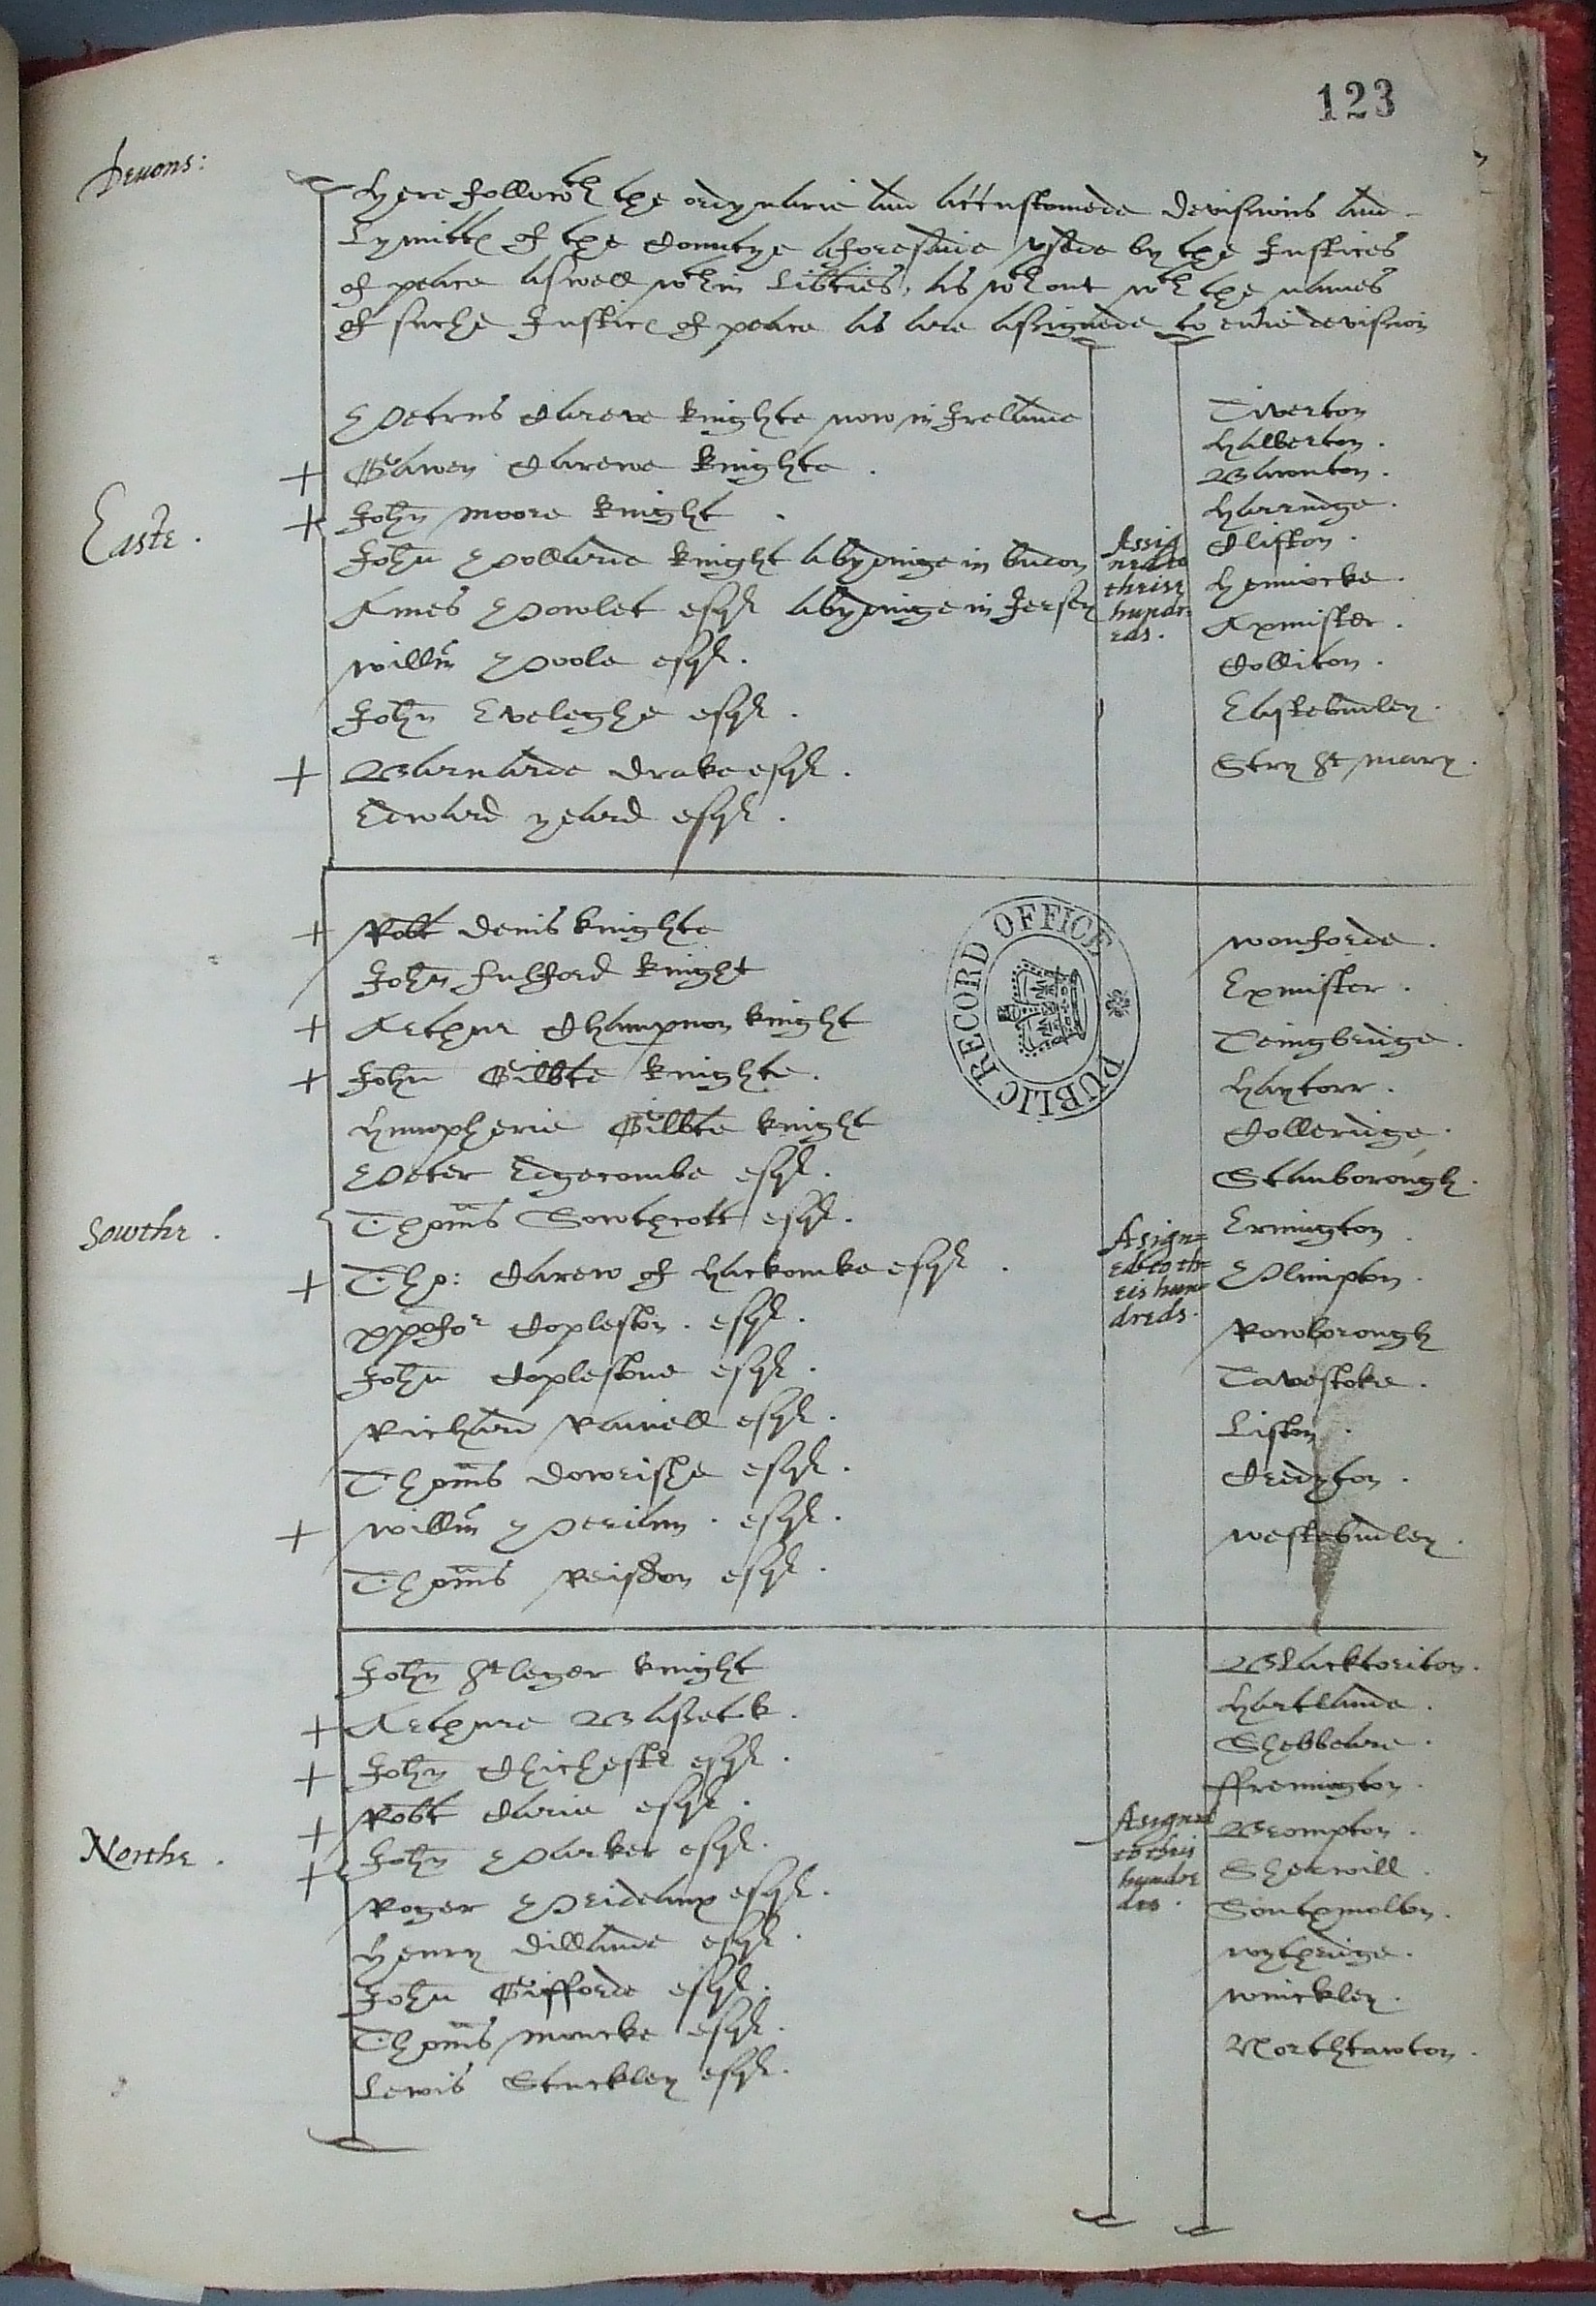 123
Devons:
Here followth the ordynarie and accustomede devisions and
Lymitts of the Countye aforesaide vsede by the Justices
of peace aswell wthin Libties, as wthout wth the names
of suche Justics of peace as are assignede to euie devision
Easte.
Petrus Careve knighte now in Irelande
+ Gawen Carewe knighte.
+ John Moore knight.
John Pollarde knight abydinge in
Ames Powlet esqr abydinge in Jersey
Willm Poole esqr.
John Eveleghe esqr.
+ Barnarde Drake esqr.
Edward yeard esqr.
Assig
ned to
theise
hundr
eds.
Tiverton
Halberton.
Bawnton.
Harridge.
Clifton.
Hemiocke.
Axmister.
Colliton.
Eastebudley.
Otry St Mary.
Sowthe.
+ Robt Denis knighte
John Fulford knight
+ Arthur Champnon knight
+ John Gilbte knighte.
Humpherie Gilbte knight
Peter Edgecombe esqr.
Thoms Sowthcott esqr.
+ Tho: Carew of Hackombe esqr.
Xpofor Copleston. esqr.
John Coplestone esqr.
Richard Rainell esqr.
Thoms Dowrishe esqr.
+ Willm Periam. esqr.
Thoms Reisdon esqr.
Asign=
ed to th=
eis hun=
dreds.
Wonforde.
Exmister.
Teingbridge.
Haytorr.
Colleridge.
Stanborough.
Ermington.
Plimpton.
Rowborough
Tavestoke.
Lifton.
Credyton.
Westebudley.
Northe.
John St leger knight
+ Arthure Basset k.
+ John Chichestr esqr.
+ Robt Carie esqr.
+ John Parker esqr.
Roger Prideaux esqr.
Henry Dillande esqr.
John Gifforde esqr.
Thoms Moncke esqr.
Lewis Stuckley esqr.
Asigned
to theis
hundre
des.
Blacktoriton.
Hartlande.
Shebbeare.
ffremington.
Brompton.
Sherwill.
Southmolton.
Wytheridge.
Winckley.
Northtawton.
PUBLIC RECORD OFFICE